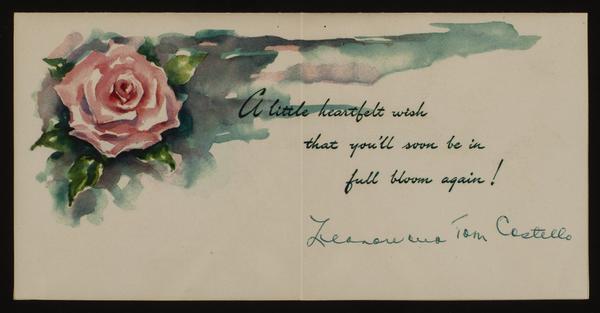 A little heartfelt wish
that you'll soon be in
full bloom again!
Leanore and Tom Costello